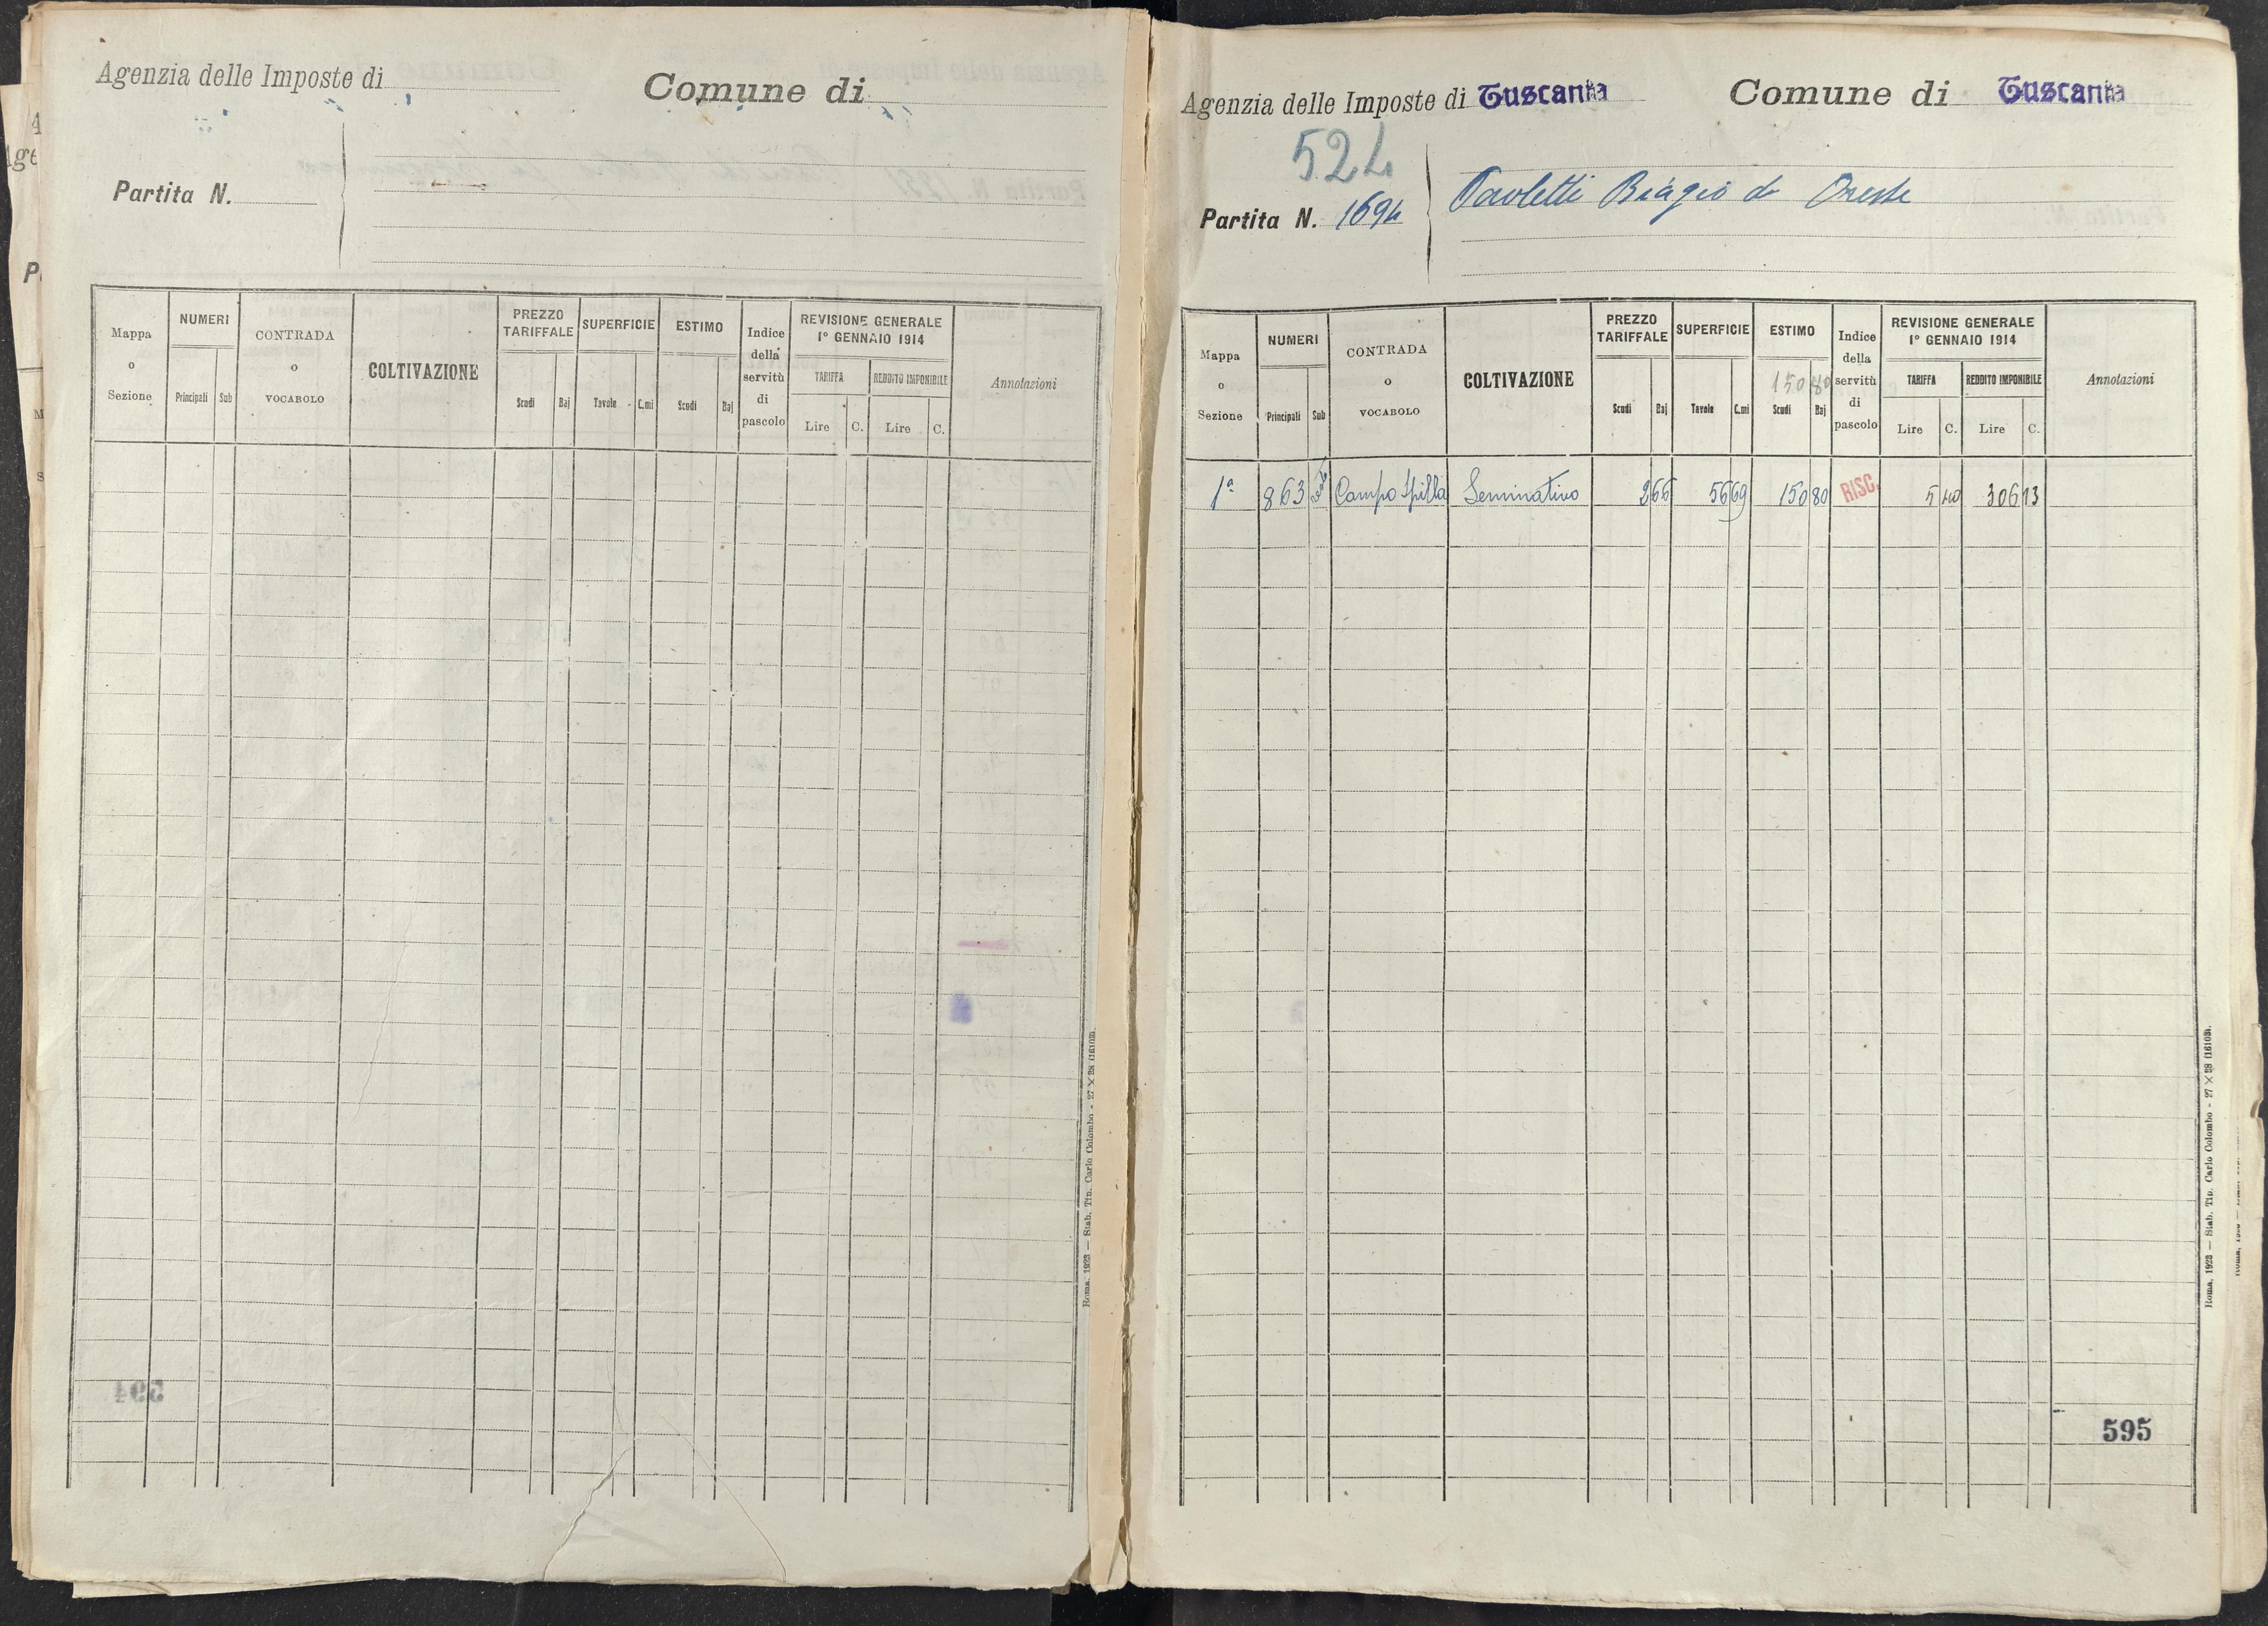 Agenzia delle Imposte di
Comune di
Partita N.
Mappa o Sezione
NUMERI
Principali Sub
CONTRADA o VOCABOLO
COLTIVAZIONE
PREZZO TARIFFALE
Scudi Baj
SUPERFICIE
Tavole C.mi
ESTIMO
Scudi Baj
Indice della servitù di pascolo
REVISIONE GENERALE
1° GENNAIO 1914
TARIFFA
Lire C.
REDDITO IMPONIBILE
Lire C.
Annotazioni
Roma, 1923 — Stab. Tip. Carlo Colombo - 27 × 38 (16103).
Agenzia delle Imposte di Tuscania
Comune di Tuscania
524
Partita N. 1694
Paoletti Biagio di Oreste
Mappa o Sezione
NUMERI
Principali Sub
CONTRADA o VOCABOLO
COLTIVAZIONE
PREZZO TARIFFALE
Scudi Baj
SUPERFICIE
Tavole C.mi
ESTIMO
150 80
Scudi Baj
Indice della servitù di pascolo
REVISIONE GENERALE
1° GENNAIO 1914
TARIFFA
Lire C.
REDDITO IMPONIBILE
Lire C.
Annotazioni
1ª 863 Campo Spilla Seminativo 2 66 56 69 150 80 RISC. 5 40 306 13
595
Roma, 1923 — Stab. Tip. Carlo Colombo - 27 × 38 (16103).